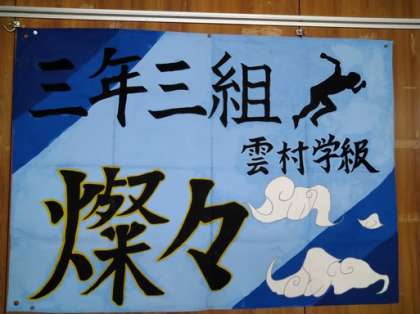 三年三組
雲村学級
燦々